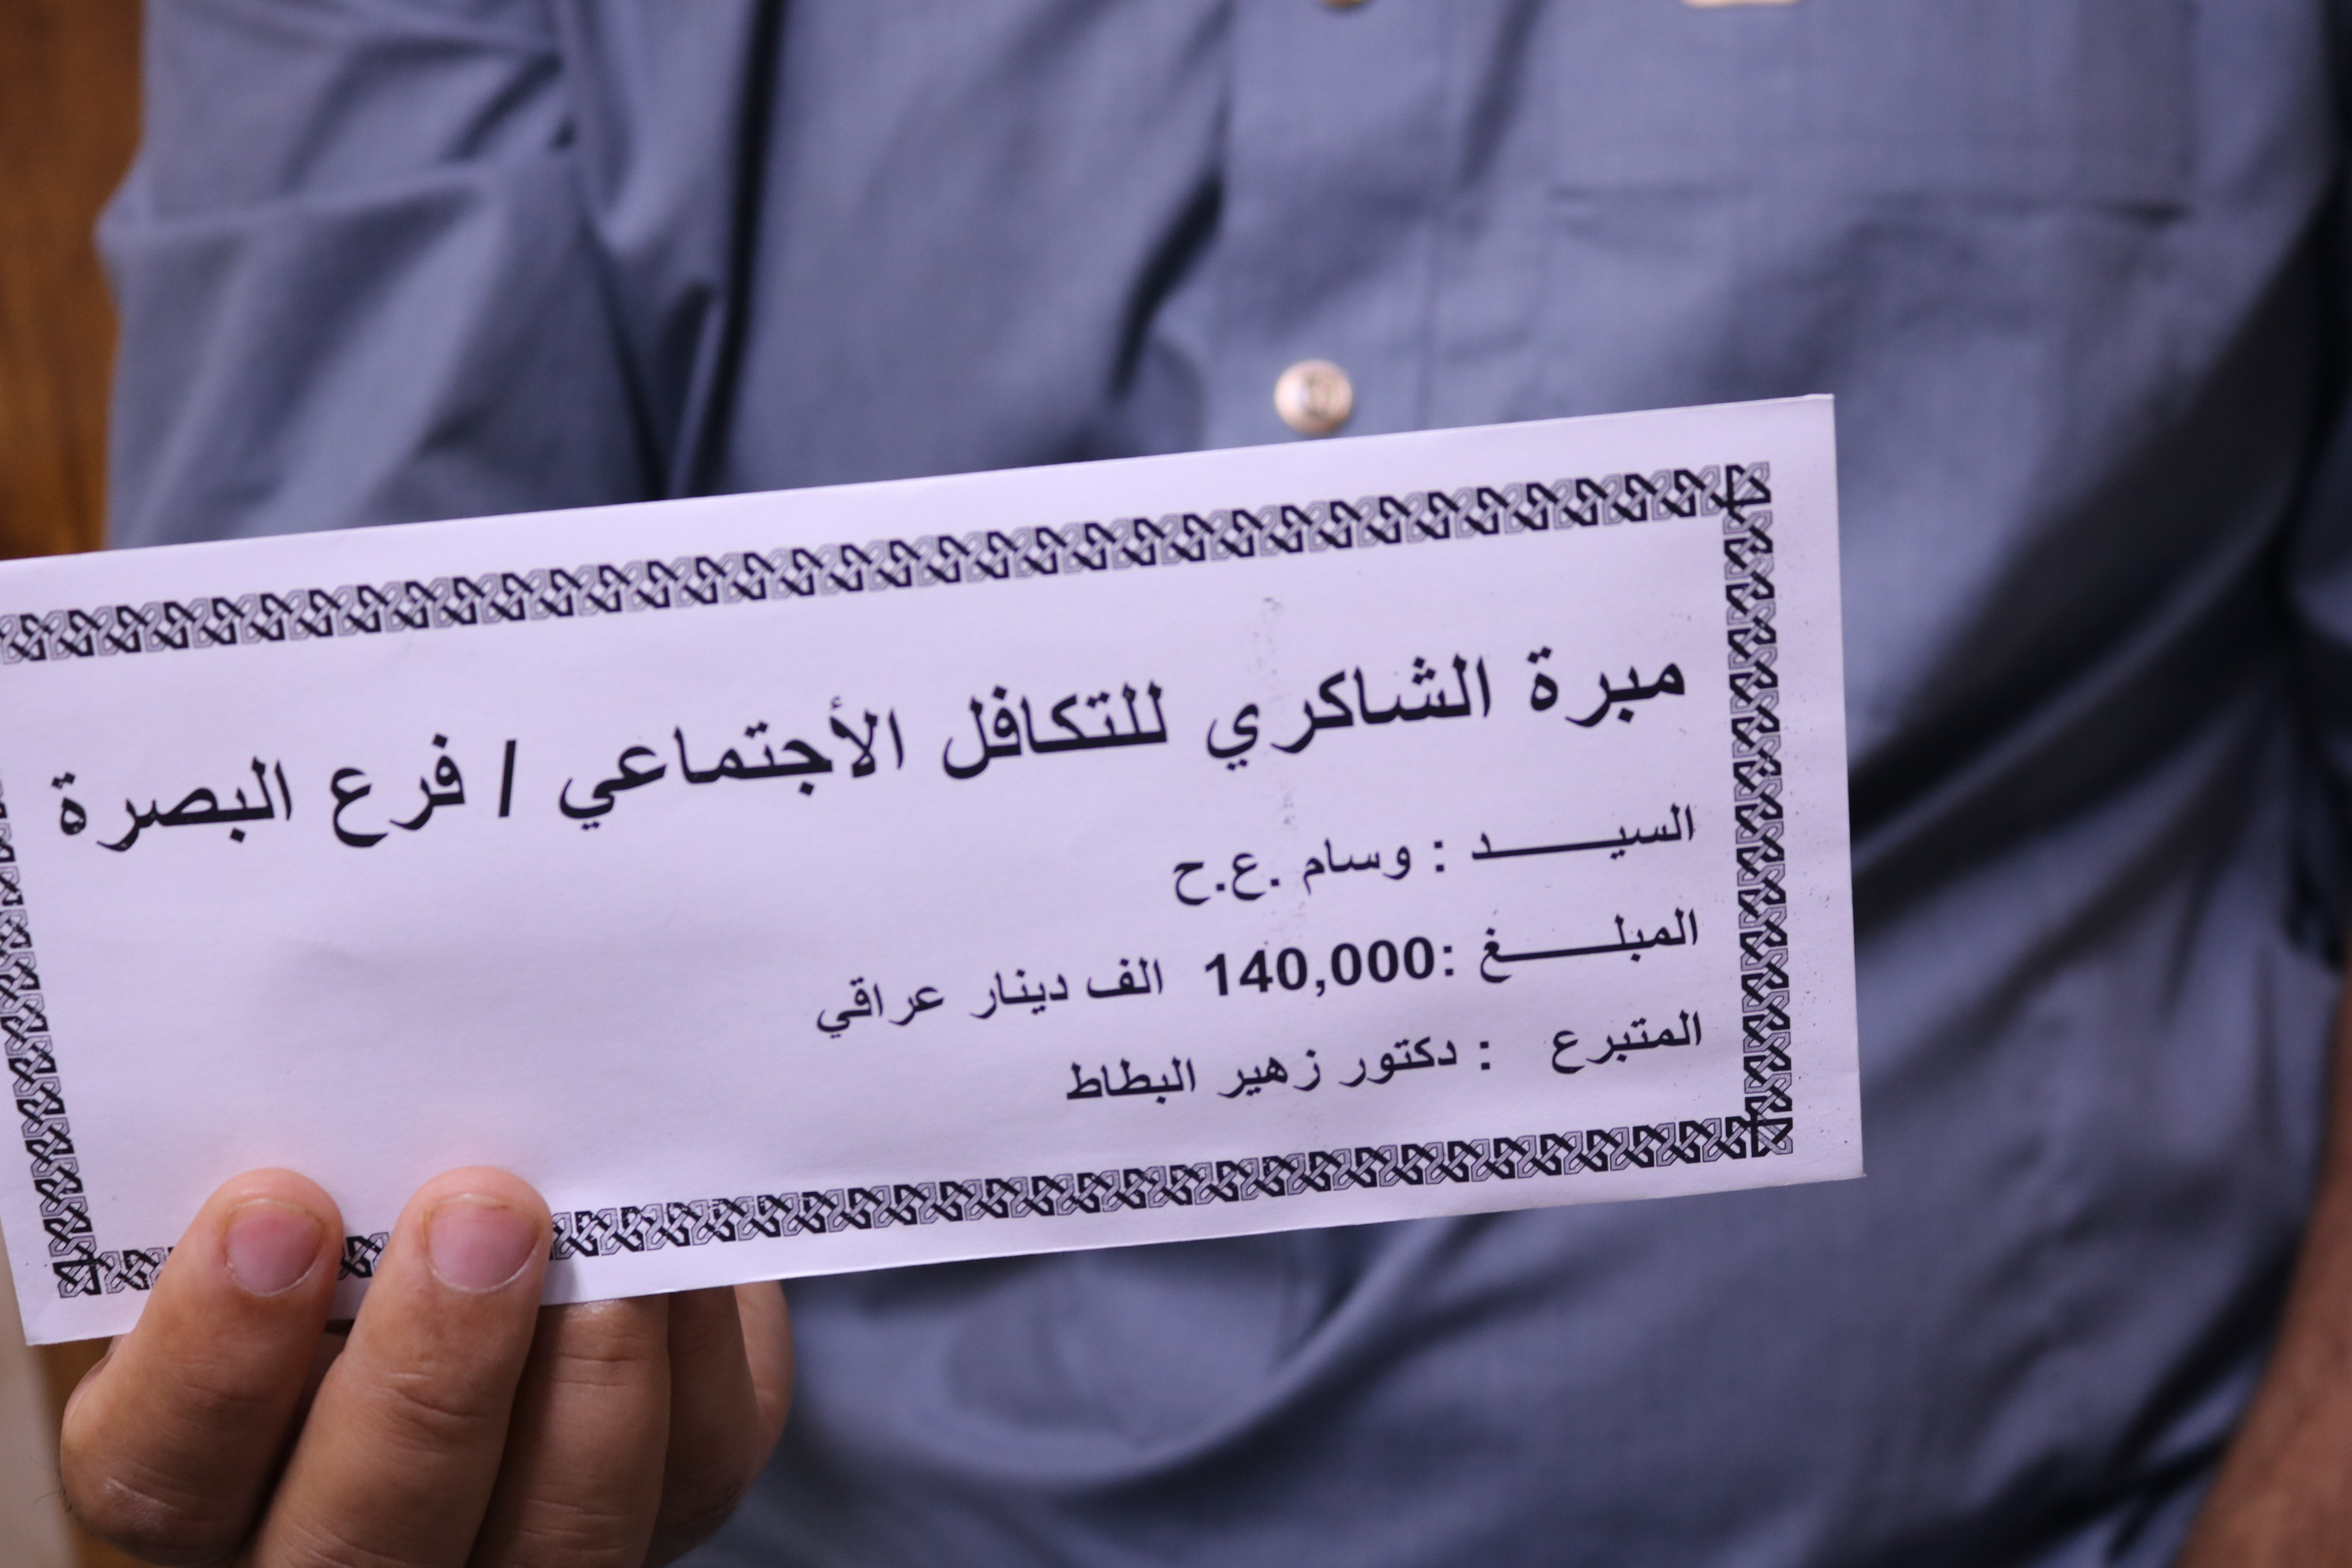 مبرة الشاكري للتكافل الأجتماعي / فرع البصرة
السيـــــــد : وسام .ع.ح
المبلـــــــغ :140,000 الف دينار عراقي
المتبرع : دكتور زهير البطاط